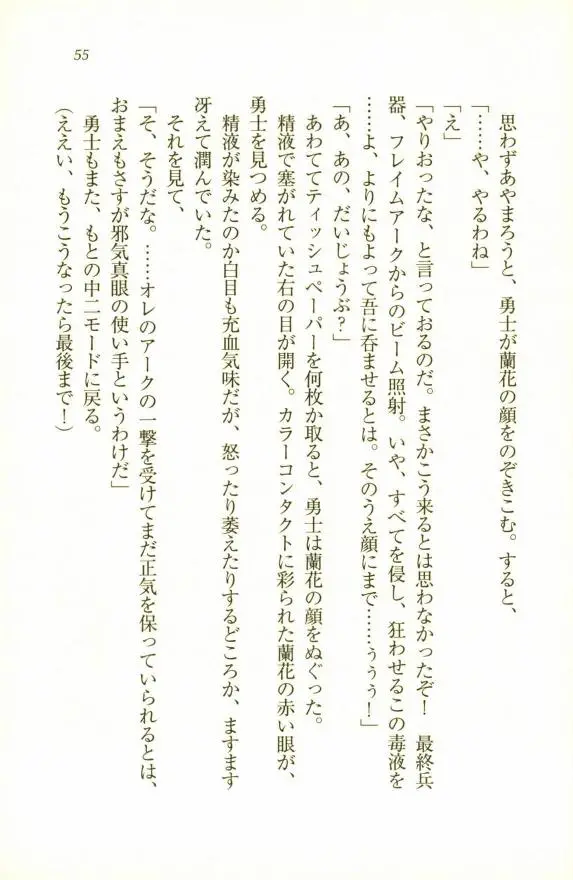 55
思わずあやまろうと、勇士が蘭花の顔をのぞきこむ。すると、
「……や、やるわね」
「え」
「やりおったな、と言っておるのだ。まさかこう来るとは思わなかったぞ！　最終兵
器、フレイムアークからのビーム照射。いや、すべてを侵し、狂わせるこの毒液を
……よ、よりにもよって吾に呑ませるとは。そのうえ顔にまで……ぅぅぅ！」
「あ、あの、だいじょうぶ？」
あわててティッシュペーパーを何枚か取ると、勇士は蘭花の顔をぬぐった。
精液で塞がれていた右の目が開く。カラーコンタクトに彩られた蘭花の赤い眼が、
勇士を見つめる。
精液が染みたのか白目も充血気味だが、怒ったり萎えたりするどころか、ますます
冴えて潤んでいた。
それを見て、
「そ、そうだな。……オレのアークの一撃を受けてまだ正気を保っていられるとは、
おまえもさすが邪気真眼の使い手というわけだ」
勇士もまた、もとの中二モードに戻る。
（ええい、もうこうなったら最後まで！）